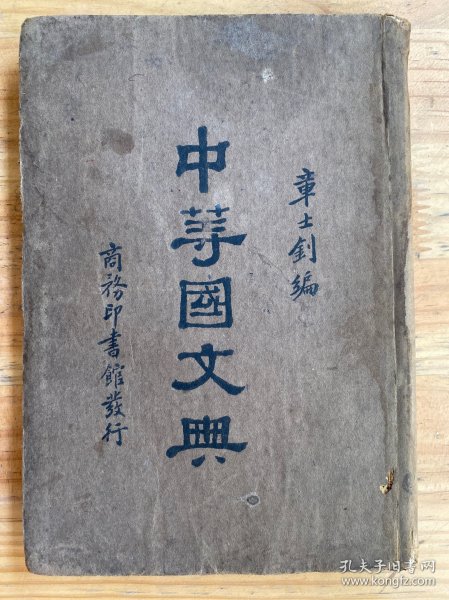 章士釗編
中等國文典
商務印書館發行
孔夫子旧书网
www.kongfz.com